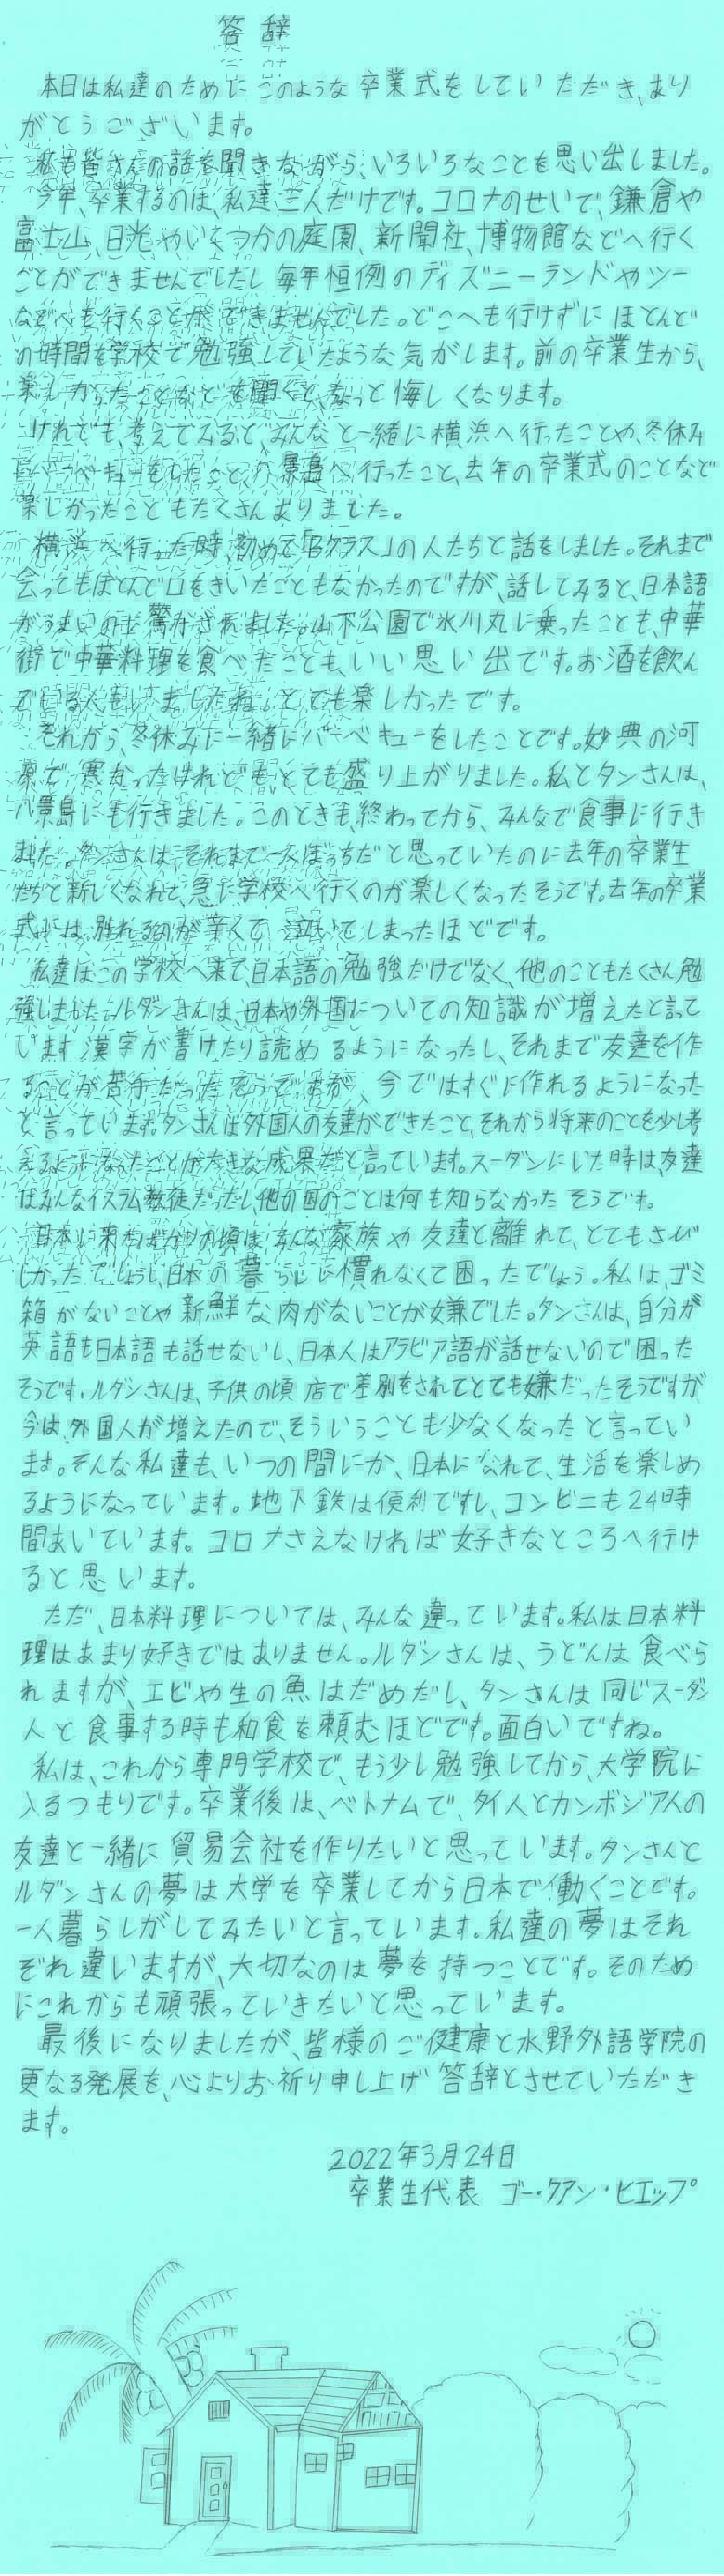 答辞
本日は私達のためにこのような卒業式をしていただき、あり
がとうございます。
私も皆さんの話を聞きながら、いろいろなことを思い出しました。
今年、卒業するのは、私達三人だけです。コロナのせいで、鎌倉や
富士山、日光やいくつかの庭園、新聞社、博物館などへ行く
ことができませんでしたし毎年恒例のディズニーランドやシー
などへも行くことができませんでした。どこへも行けずにほとんど
の時間を学校で勉強していたような気がします。前の卒業生から、
楽しかったことなどを聞くと、ちょっと悔しくなります。
けれども、考えてみると、みんなと一緒に横浜へ行ったことや、冬休み
にバーベキューをしたこと、八景島へ行ったこと、去年の卒業式のことなど
楽しかったこともたくさんありました。
横浜へ行った時、初めて「Bクラス」の人たちと話をしました。それまで
会ってもほとんど口をきいたこともなかったのですが、話してみると、日本語
がうまいのに驚かされました。山下公園で氷川丸に乗ったことも、中華
街で中華料理を食べたことも、いい思い出です。お酒を飲ん
でいる人もいましたね。とても楽しかったです。
それから、冬休みに一緒にバーベキューをしたことです。妙典の河
原で寒かったけれどもとても盛り上がりました。私とタンさんは、
八景島にも行きました。このときも、終わってから、みんなで食事に行き
ました。タンさんは、それまで一人ぼっちだと思っていたのに去年の卒業生
たちと親しくなれて、急に学校へ行くのが楽しくなったそうです。去年の卒業
式には、別れるのが辛くて、泣いてしまったほどです。
私達はこの学校へ来て、日本語の勉強だけでなく、他のこともたくさん勉
強しました。ルダンさんは、日本や外国についての知識が増えたと言って
います。漢字が書けたり読めるようになったし、それまで友達を作
ることが苦手だったそうですが、今ではすぐに作れるようになった
と言っています。タンさんは外国人の友達ができたこと、それから将来のことを少し考
えるようになったことが大きな成果だと言っています。スーダンにいた時は、友達
はみんなイスラム教徒だったし、他の国のことは何も知らなかったそうです。
日本に来たばかりの頃は、みんな家族や友達と離れて、とてもさびし
しかったでしょうし、日本の暮らしに慣れなくて困ったでしょう。私は、ゴミ
箱がないことや新鮮な肉がないことが嫌でした。タンさんは、自分が
英語も日本語も話せないし、日本人はアラビア語が話せないので困った
そうです。ルダンさんは、子供の頃店で差別をされてとても嫌だったそうですが
今は、外国人が増えたので、そういうことも少なくなったと言ってい
ます。そんな私達も、いつの間にか、日本になれて、生活を楽しめ
るようになっています。地下鉄は便利ですし、コンビニも24時
間あいています。コロナさえなければ好きなところへ行け
ると思います。
ただ、日本料理については、みんな違っています。私は日本料
理はあまり好きではありません。ルダンさんは、うどんは食べら
れますが、エビや生の魚はだめだし、タンさんは同じスーダン
人と食事する時も和食を頼むほどです。面白いですね。
私は、これから専門学校で、もう少し勉強してから、大学院に
入るつもりです。卒業後は、ベトナムで、タイ人とカンボジア人の
友達と一緒に貿易会社を作りたいと思っています。タンさんと
ルダンさんの夢は大学を卒業してから日本で働くことです。
一人暮らしがしてみたいと言っています。私達の夢はそれ
ぞれ違いますが、大切なのは夢を持つことです。そのため
にこれからも頑張っていきたいと思っています。
最後になりましたが、皆様のご健康と水野外語学院の
更なる発展を、心よりお祈り申し上げ答辞とさせていただき
ます。
2022年3月24日
卒業生代表 ゴー・クアン・ヒエップ